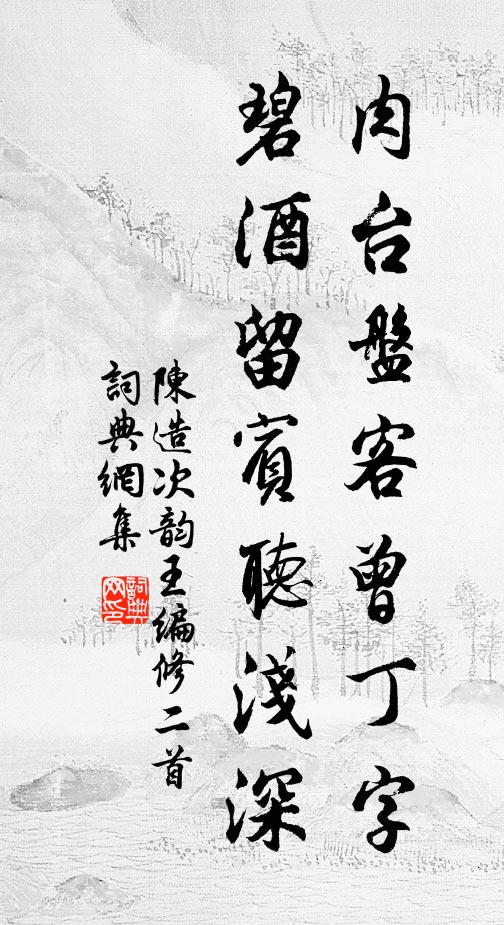 肉台盤客曾丁字
碧酒留賓聽淺深
陳造次韵王編修二首
詞典網集